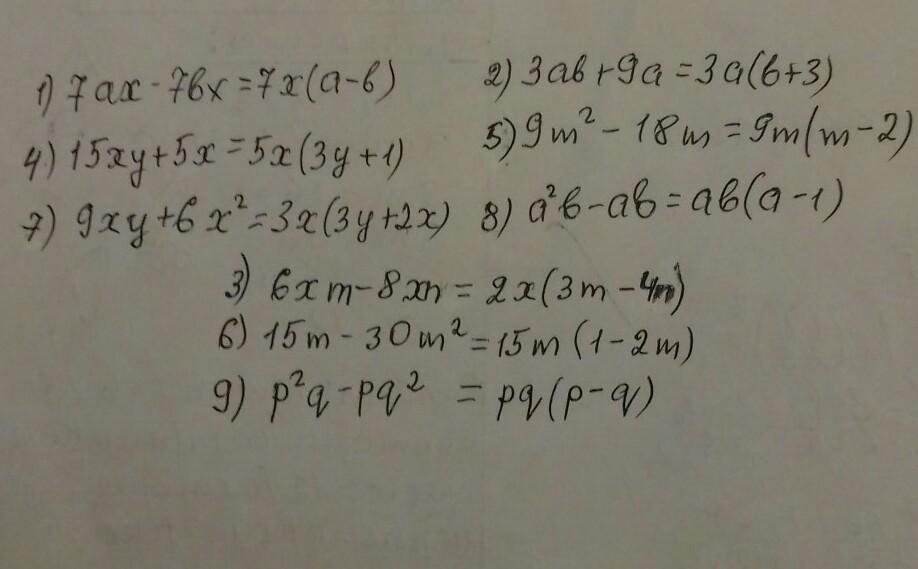 1) 7ax - 7bx = 7x(a-b) 2) 3ab + 9a = 3a(b+3)
4) 15xy + 5x = 5x(3y+1) 5) 9m² - 18m = 9m(m-2)
7) 9xy + 6x² = 3x(3y+2x) 8) a²b - ab = ab(a-1)
3) 6xm - 8xn = 2x(3m - 4n)
6) 15m - 30m² = 15m(1-2m)
9) p²q - pq² = pq(p-q)